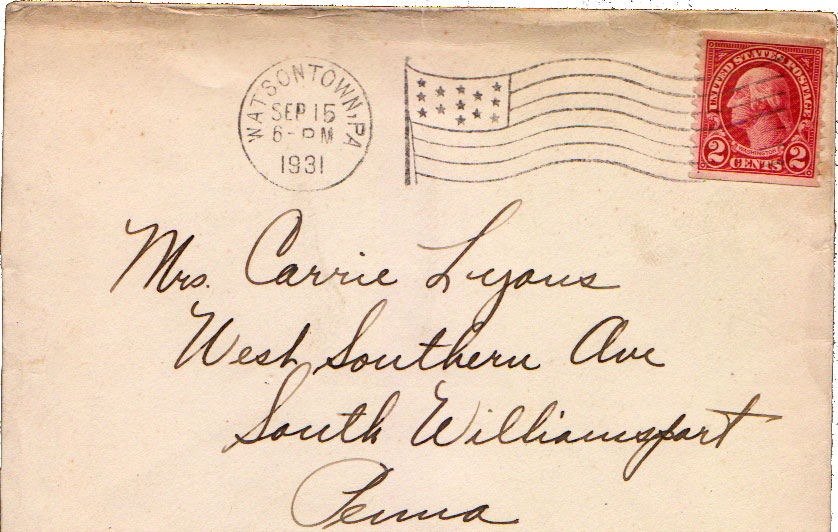 WATSONTOWN, PA
SEP 15
6-PM
1931
UNITED STATES POSTAGE
WASHINGTON
2 CENTS 2
Mrs. Carrie Lyons
West Southern Ave
South Williamsport
Penna